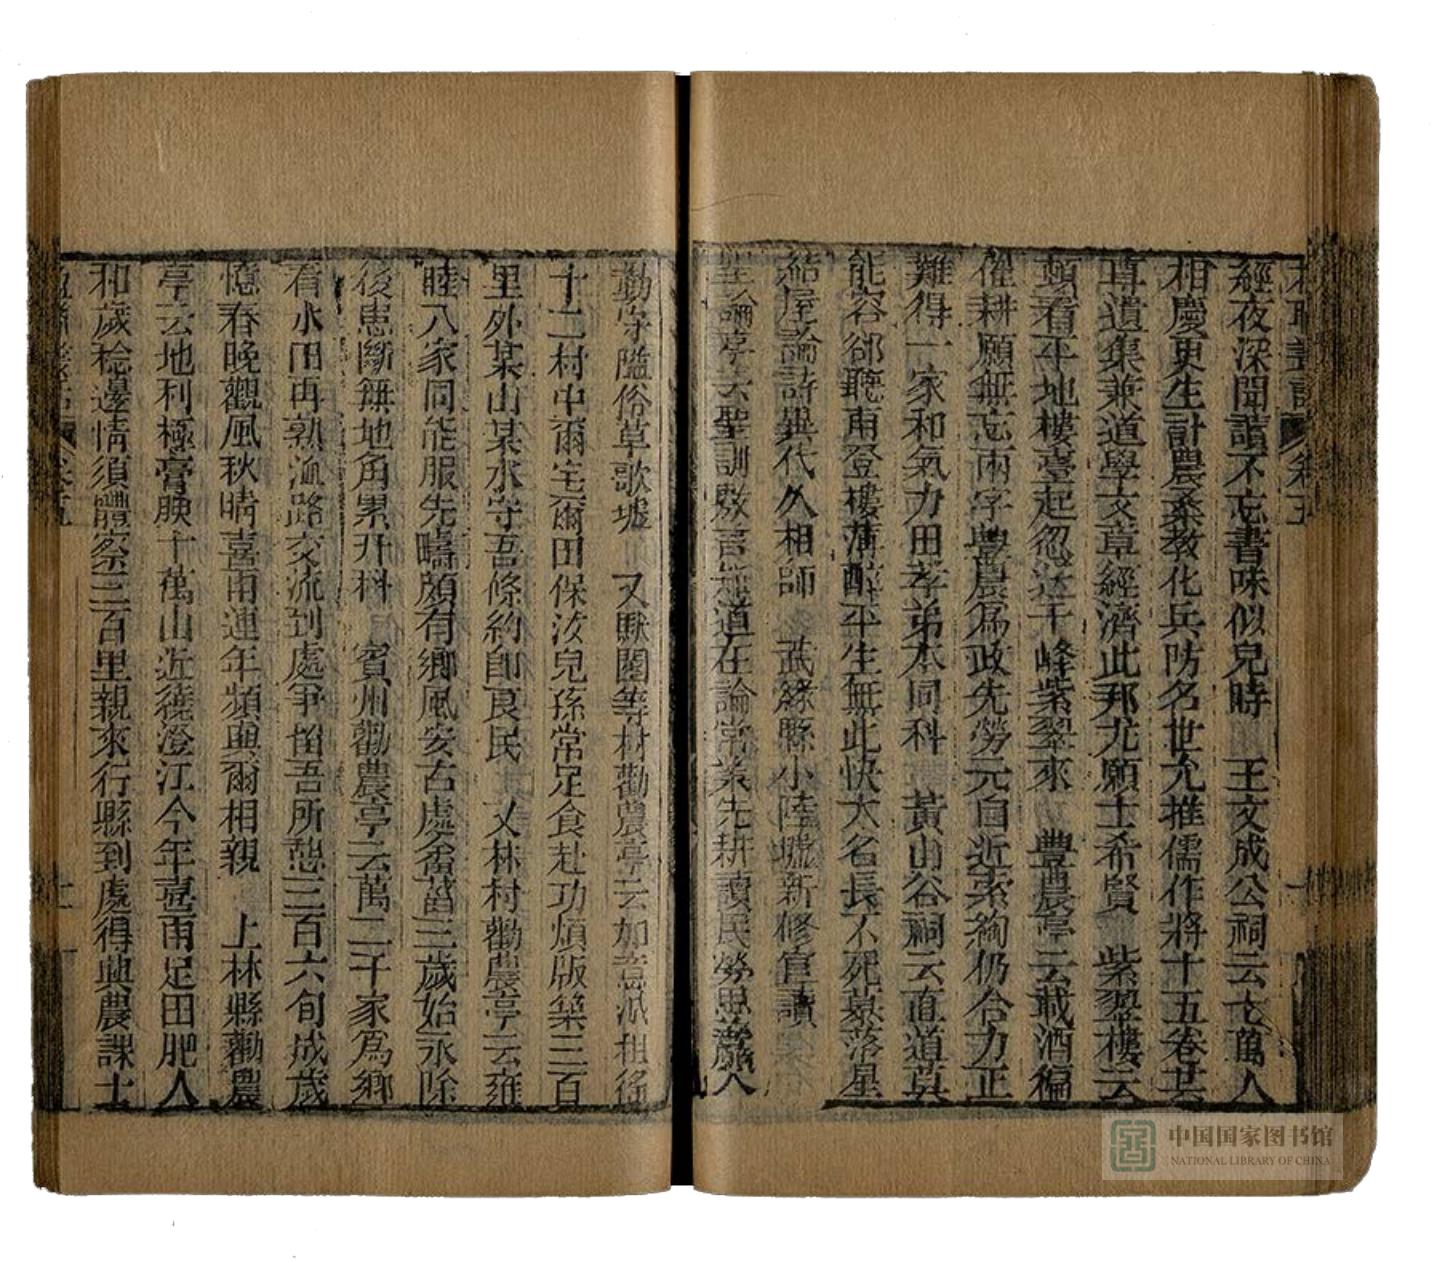 經夜深聞讀不忘書味似兒時　王文成公祠云七萬人
相慶更生計農桑教化兵防名世允推儒作將十五卷共
尊道集兼道學文章經濟此邦尤願士希賢　紫翠樓云
頻看平地樓臺起忽送千峰紫翠來　豐農亭云載酒徧
催耕願無忘兩字豐農為政先勞元自近索綯仍合力正
難得一家和氣力田孝弟本同科　黃山谷祠云直道莫
能容郤聽雨登樓薄醉平生無此快大名長不死慕落星
結屋論詩異代久相師　武緣縣小陸墟新修宣讀
聖論亭云聖訓敷言道在論常業先耕讀民勞思
勸　隘俗草歌墟　又　閣等村勸農亭云如　派祖徭
十二村中爾宅爾田保汝兒孫常足食赴功煩版築三百
里外某山某水守吾條約即良民　又林村勸農亭云雍
睦八家同能服先疇頗有鄉風安古處畬菑三歲始永除
後患斷無地角累升科　賓州勸農亭云萬二千家為鄉
看水田再熟漁路交流到處爭留吾所憩三百六旬成歲
憶春晚觀風秋晴喜雨連年頻與爾相親　上林縣勸農
亭云地利極膏腴十萬山近繞澄江今年喜雨足田肥人
和歲稔邊情須體察三百里親來行縣到處得興農課士
中国国家图书馆
NATIONAL LIBRARY OF CHINA